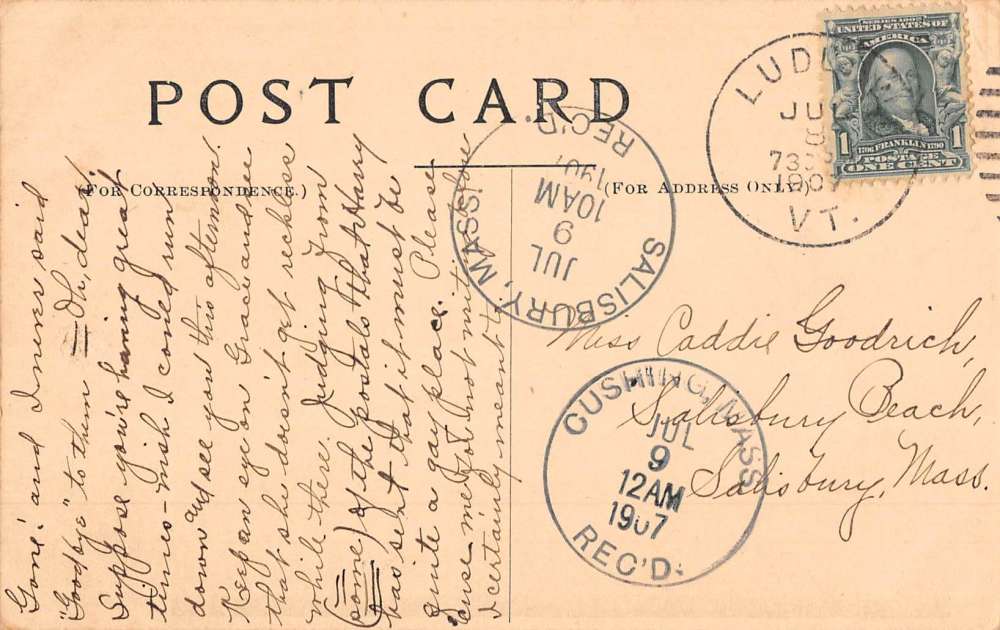 POST CARD
(FOR CORRESPONDENCE.)
(FOR ADDRESS ONLY.)
SERIES 1902
UNITED STATES OF
AMERICA
1 1706 FRANKLIN 1790 1
POSTAGE
ONE CENT
LUDL
JU
8
1907
VT.
SALISBURY, MASS.
JUL
9
10AM
190
REC'D.
CUSHING, MASS
JUL
9
12AM
1907
REC'D.
Miss Caddie Goodrich,
Salisbury Beach,
Salisbury, Mass.
Gone! and I never said
"Goodbye" to them = Oh, dear!
Suppose you're having great
times - wish I could run
down and see you this afternoon.
Keep an eye on Grace and see
that she doesn't get reckless
while there. Judging from
(some) of the postals that Harry
has sent that it must be
quite a gay place. Please
excuse me for not writing before
I certainly meant to